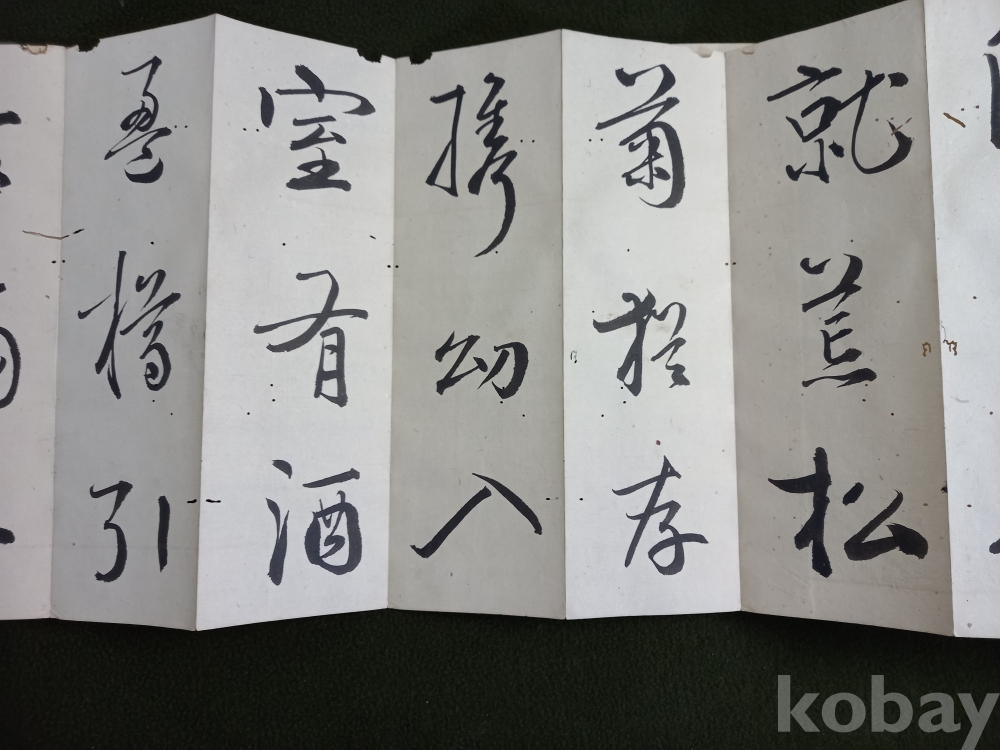 就荒松
菊猶存
携幼入
室有酒
盈樽引
kobay